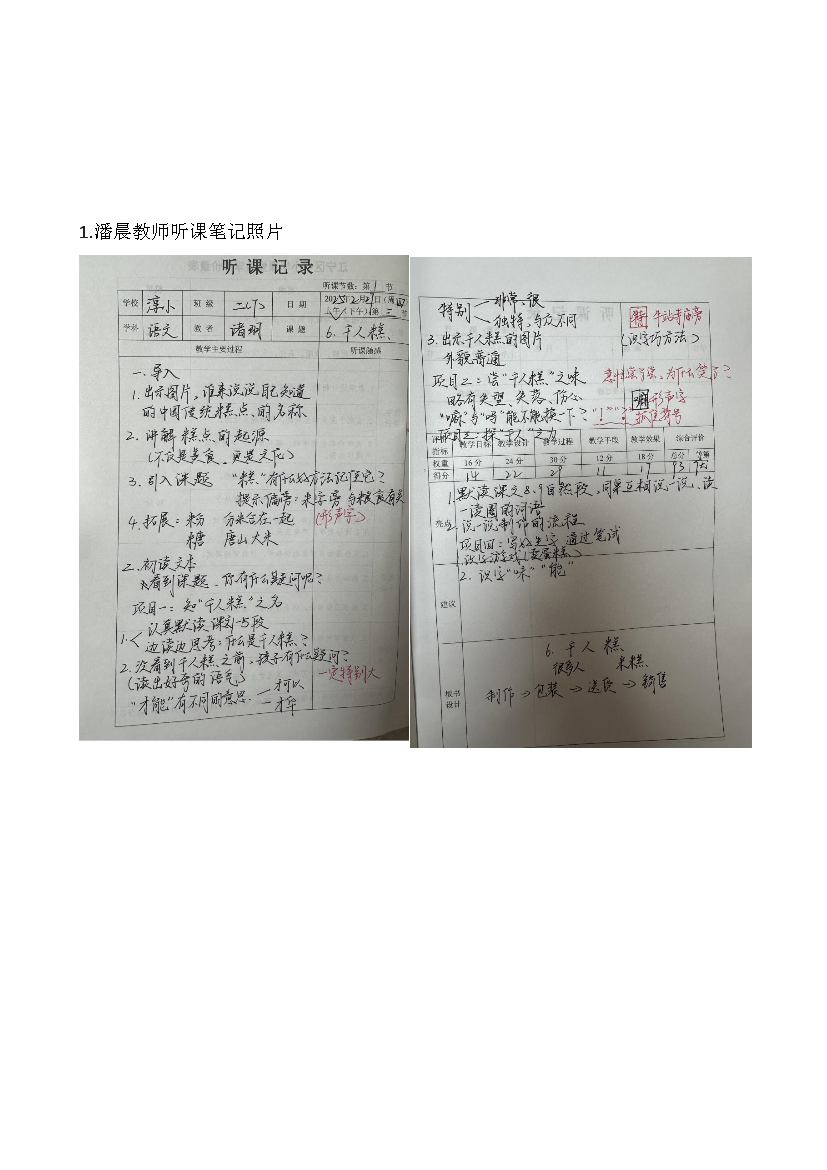 1.潘晨教师听课笔记照片
听 课 记 录
听课节数：第 1 节
学校 淳小 班 级 二(7) 日 期
学科 语文 教 者 诸羽 课 题 6.千人糕、
教学主要过程 听课随感
一、导入
1.出示图片，谁来说说自己知道
的中国传统糕点、的名称
2. 讲解糕点的起源
（不仅是美食，更是文化）
3. 引入课题 “糕”有什么好方法记住它？
提示偏旁：米字旁与粮食有关
4.拓展：粉 分米合在一起 （形声字）
糖 唐山大米
二、初读文本
看到课题、你有什么疑问呢？
项目一：知“千人糕”之名
认真默读课文1-5段
1.< 边读边思考：什么是千人糕？
2.没看到千人糕之前，孩子有什么疑问？
（读出好奇的语气） 一定特别大
“才能”有不同的意思 才可以
才华
特别 非常、很
独特，与众不同
特 牛站寺庙旁
（识字巧方法）
3.出示千人糕的图片
外貌普通
项目二：尝“千人糕”之味
略有失望、失落、伤心
“嘛”与“吗”能不能换一下？
形声字
项目三：探“千人”之力
评价指标 教学目标 教学设计 教学过程 教学手段 教学效果 综合评价
权重 16分 24分 30分 12分 18分 总分 等第
得分 14 22 29 11 17 93
亮点
1.默读课文8、9自然段，同桌互相说一说、读
一读圈的词语
2.说一说制作的流程
项目四：写好生字 通过笔试
识字游戏（卖蛋糕）
2. 识字“味”“能”
建议
板书设计
6. 千 人 糕
很多人 米糕
制作→包装→送货→销售